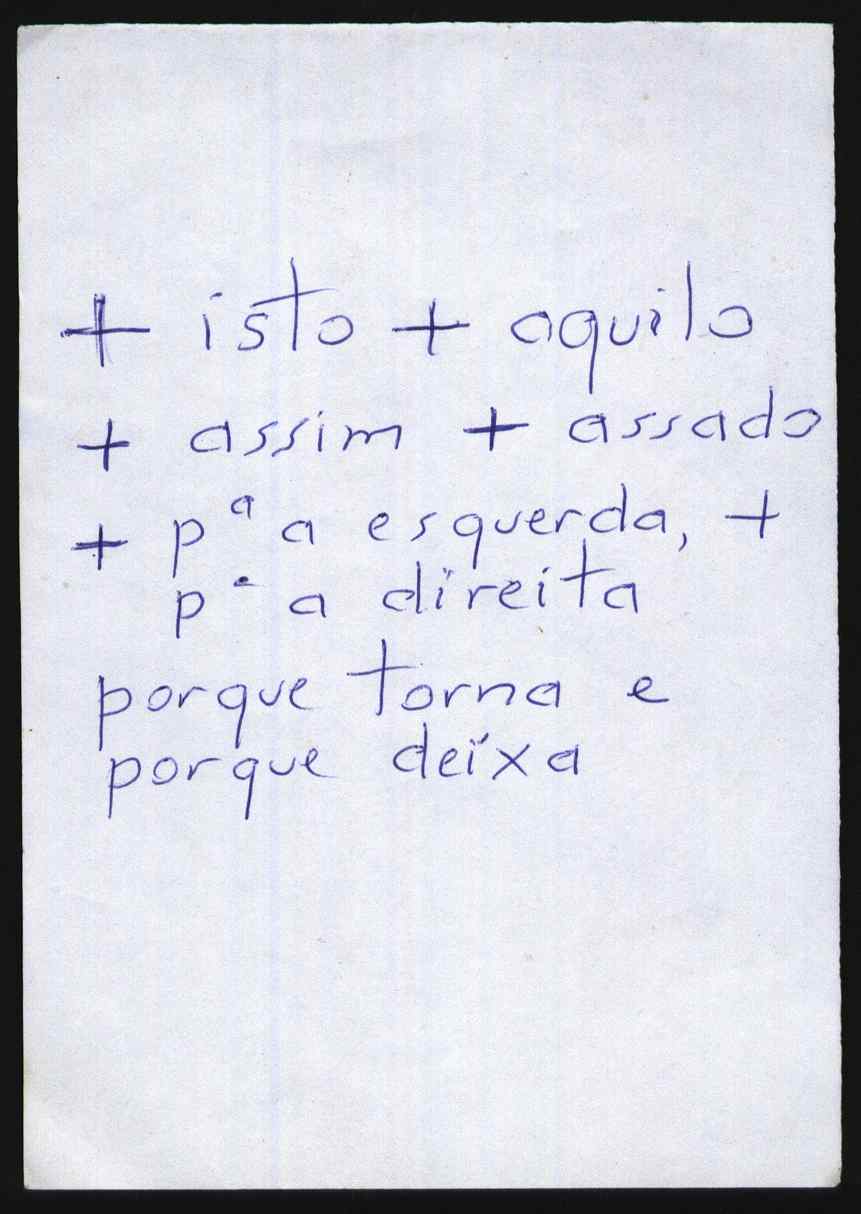 + isto + aquilo
+ assim + assado
+ pª a esquerda, +
pª a direita
porque torna e
porque deixa